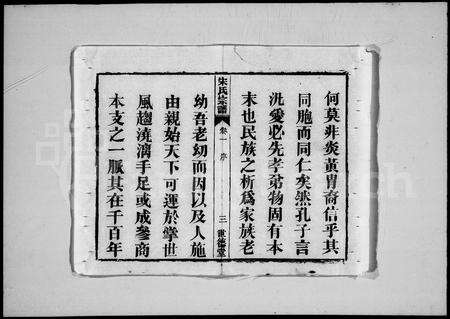 何莫非炎黃冑裔信乎其
同胞而同仁矣然孔子言
汎愛必先孝弟物固有本
末也民族之析爲家族老
朱氏宗譜
卷一 序
三 世德堂
幼吾老幼而因以及人施
由親始天下可運於掌世
風趨澆漓手足或成參商
本支之一脈其在千百年